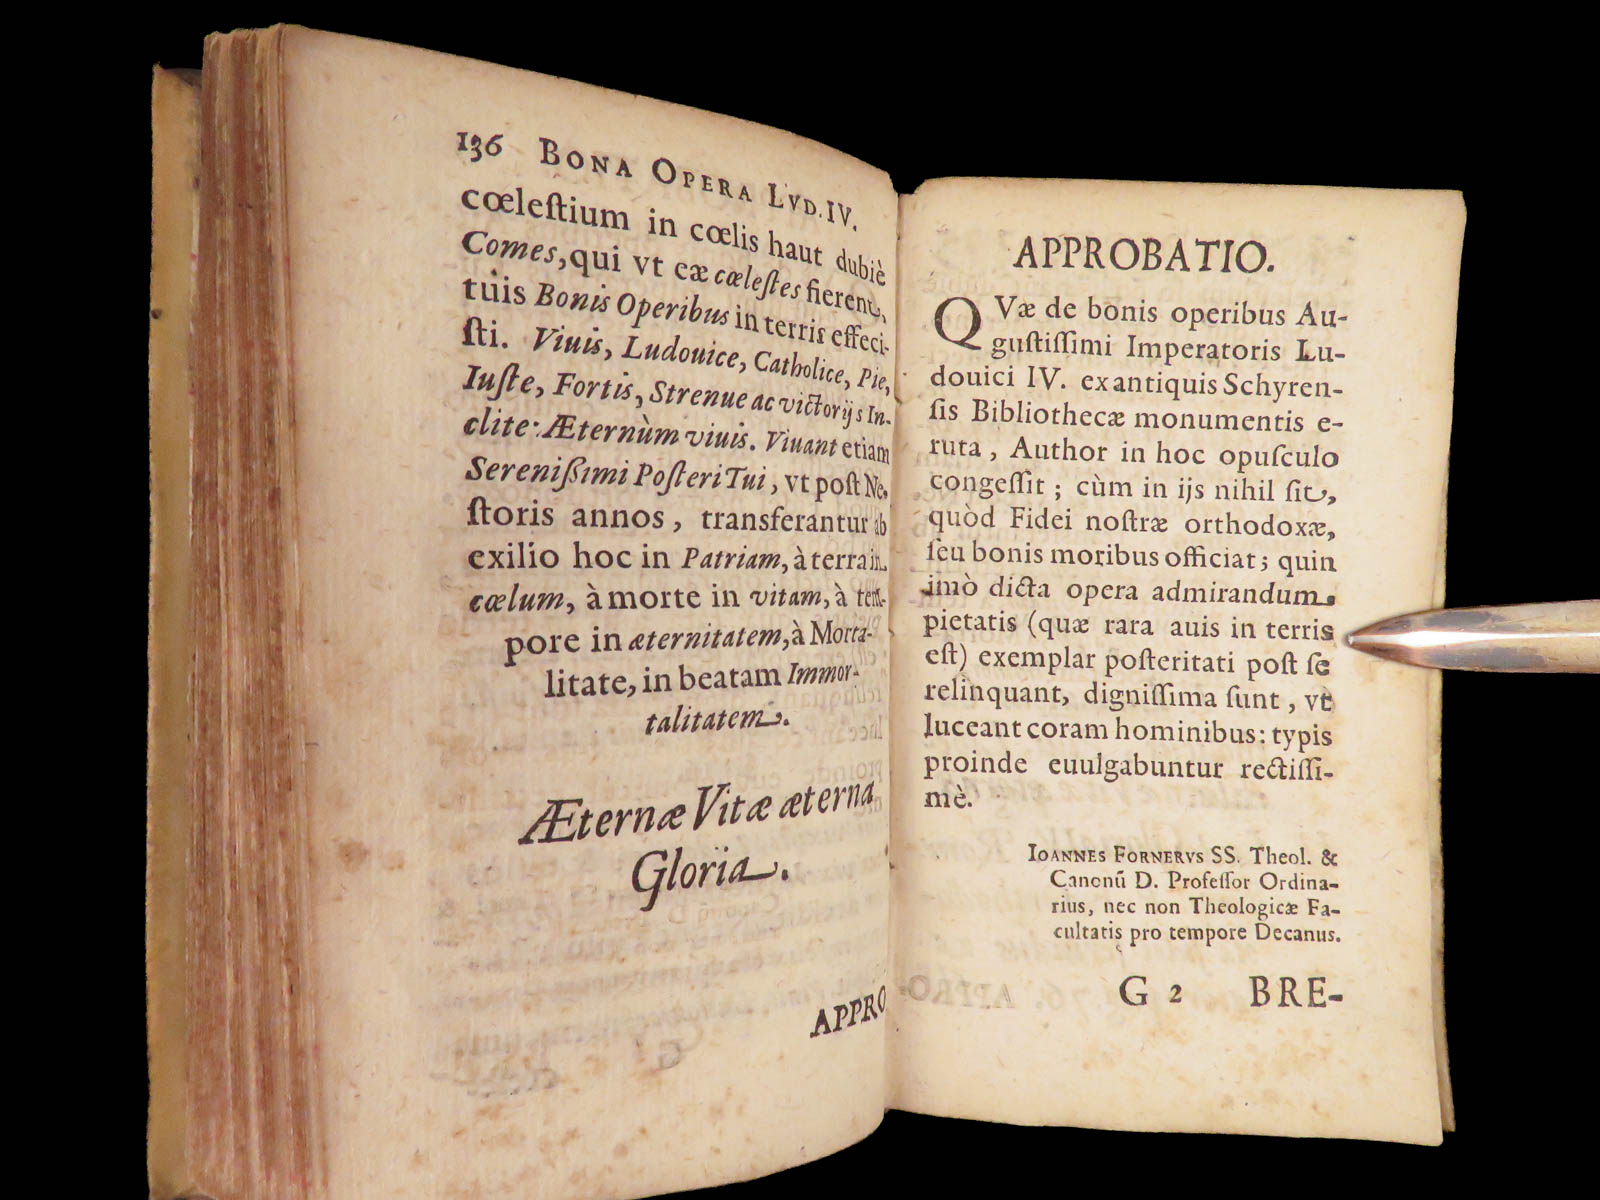 136 BONA OPERA LVD. IV.
cœleſtium in cœlis haut dubiè
Comes, qui vt eæ cœleſtes fierent,
tuis Bonis Operibus in terris effeci-
ſti. Viuis, Ludouice, Catholice, Pie,
Iuſte, Fortis, Strenue ac victorijs In-
clite: Æternùm viuis. Viuant etiam
Sereniſſimi Poſteri Tui, vt poſt Ne-
ſtoris annos, transferantur ab
exilio hoc in Patriam, à terra in
cœlum, à morte in vitam, à tem-
pore in æternitatem, à Morta-
litate, in beatam Immor-
talitatem.
Æternæ Vitæ æterna
Gloria.
APPRO
APPROBATIO.
QVæ de bonis operibus Au-
guſtiſſimi Imperatoris Lu-
douici IV. ex antiquis Schyren-
ſis Bibliothecæ monumentis e-
ruta, Author in hoc opuſculo
congeſſit; cùm in ijs nihil ſit,
quòd Fidei noſtræ orthodoxæ,
ſeu bonis moribus officiat; quin
imò dicta opera admirandum
pietatis (quæ rara auis in terris
eſt) exemplar poſteritati poſt ſe
relinquant, digniſſima ſunt, vt
luceant coram hominibus: typis
proinde euulgabuntur rectiſſi-
mè.
IOANNES FORNERVS SS. Theol. &
Canonũ D. Profeſſor Ordina-
rius, nec non Theologicæ Fa-
cultatis pro tempore Decanus.
G 2 BRE-